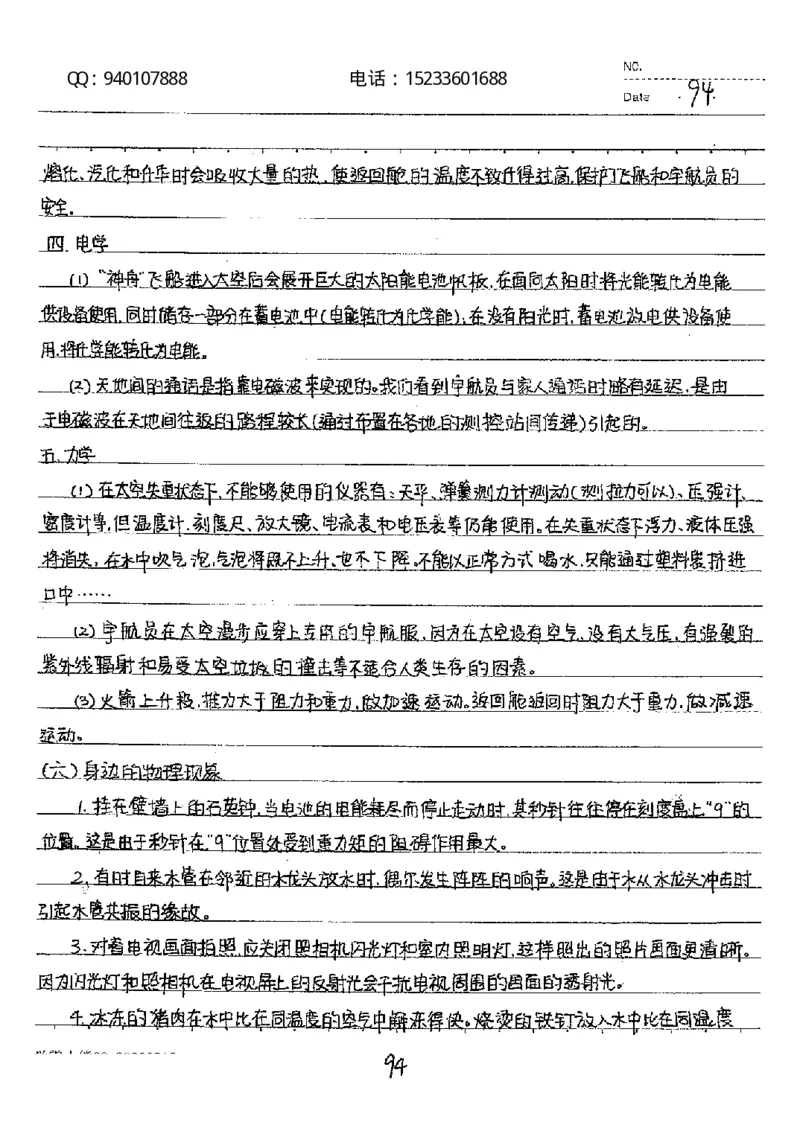 QQ：940107888 电话：15233601688 NO.
Date 94.
熔化、汽化和升华时会吸收大量的热，使返回舱的温度不致升得过高，保护飞船和宇航员的
安全。
四、电学
(1)“神舟”飞船进入太空后会展开巨大的太阳能电池帆板，在面向太阳时将光能转化为电能
供设备使用，同时储存一部分在蓄电池中(电能转化为化学能)，在没有阳光时，蓄电池放电供设备使
用，将化学能转化为电能。
(2)天地间的通话是指靠电磁波来实现的。我们看到宇航员与家人通话时略有延迟，是由
于电磁波在天地间往返的路程较长(通过布置在各地的测控站间传递)引起的。
五、力学
(1)在太空失重状态下，不能够使用的仪器有：天平、弹簧测力计测动(测拉力可以)、压强计、
密度计等，但温度计、刻度尺、放大镜、电流表和电压表等仍能使用。在失重状态下浮力、液体压强
将消失，在水中吹气泡，气泡得既不上升、也不下降。不能以正常方式喝水，只能通过塑料袋挤进
口中……
(2)宇航员在太空漫步应穿上专用的宇航服，因为在太空没有空气，没有大气压，有强裂的
紫外线辐射和易受太空垃圾的撞击等不适合人类生存的因素。
(3)火箭上升段，推力大于阻力和重力，做加速运动。返回舱返回时阻力大于重力，做减速
运动。
(六)身边的物理现象
1.挂在壁墙上的石英钟，当电池的电能耗尽而停止走动时，其秒针往往停在刻度盘上“9”的
位置。这是由于秒针在“9”位置处受到重力矩的阻碍作用最大。
2.有时自来水管在邻近的水龙头放水时，偶尔发生阵阵的响声。这是由于水从水龙头冲击时
引起水管共振的缘故。
3.对着电视画面拍照，应关闭照相机闪光灯和室内照明灯，这样照出的照片画面更清晰。
因为闪光灯和照相机在电视屏上的反射光会干扰电视周围的画面的透射光。
4.冰冻的猪肉在水中比在同温度的空气中解冻得快。烧烫的铁钉放入水中比在同温度
94